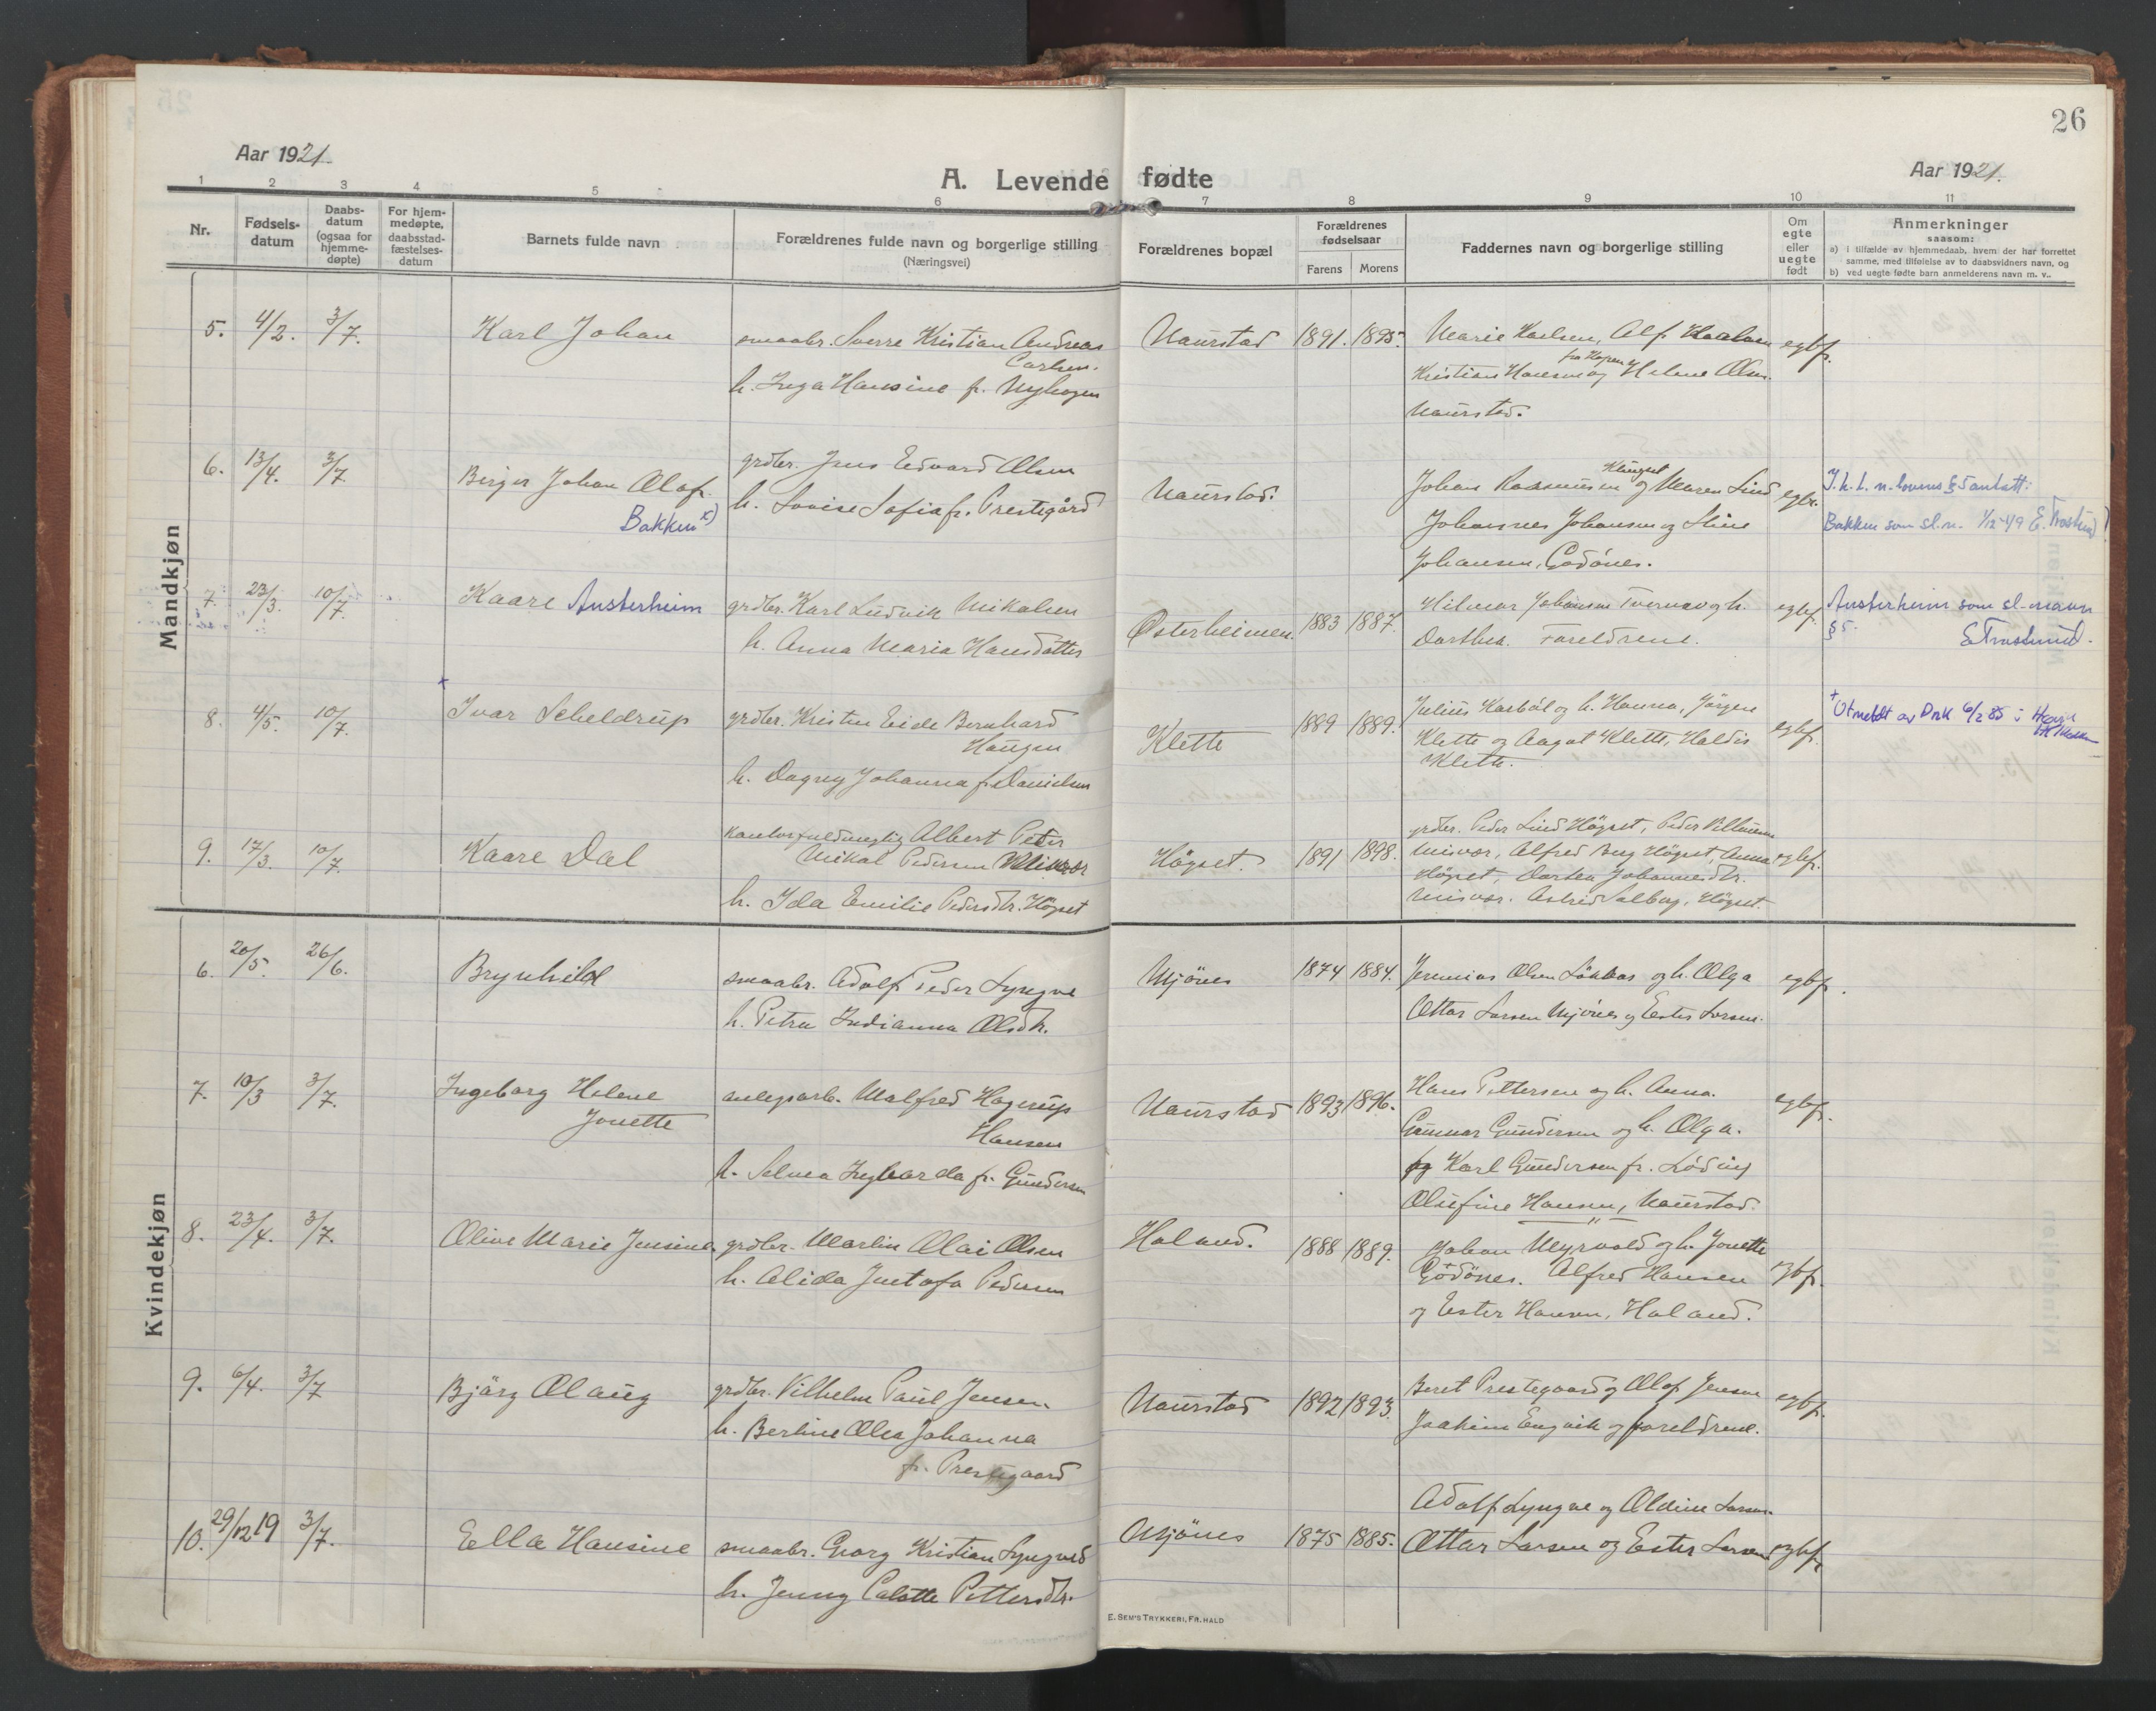 26
Aar 1921.
Aar 1921.
A. Levende fødte
1 2 3 4 5 6 7 8 9 10 11
Nr.
Fødsels-
datum
Daabs-
datum
(ogsaa for
hjemme-
døpte)
For hjem-
medøpte,
daabsstad-
fæstelses-
datum
Barnets fulde navn
Forældrenes fulde navn og borgerlige stilling
(Næringsvei)
Forældrenes bopæl
Forældrenes
fødselsaar
Farens Morens
Faddernes navn og borgerlige stilling
Om
egte
eller
uegte
født
Anmerkninger
saasom:
a) i tilfælde av hjemmedaab, hvem der har forrettet
samme, med tilføielse av to daabsvidners navn, og
b) ved uegte fødte barn anmelderens navn m. v..
Mandkjøn
5. 4/2. 3/7. Karl Johan
smaabr. Sverre Kristian Andreas
Carlsen.
h. Inga Hansine f. Nyhagen
Naurstad 1891. 1895.
Marie Karlsen, Alf
Kristian Hansen og Helene Olsen
Naurstad.
egtef.
6. 13/4. 3/7. Birger Johan Olaf.
Bakken x)
grdbr. Jens Edvard Olsen
h. Lovise Sofia f. Prestegård
Naurstad.
Klungset
Johan Rasmussen og Maren Lind
Johannes Johansen og Stine
Johansen, Godönes.
egtef.
I.h.t. n-lovens § 5 antatt:
Bakken som sl.n. 1/12-49 E. Trosterud
7. 23/3. 10/7. Kaare Austerheim
grdbr. Karl Ludvik Mikalsen
h. Anna Maria Hansdatter
Østerheimen 1883 1887.
Hilmar Johansen Tvernav og h.
Dorthea. Foreldrene.
egtef.
Austerheim som sl-navn
§ 5.
8. 4/5. 10/7. Ivar Scheldrup
grdbr. Kristen Eide Bernhard
Haugen
h. Dagny Johanna f. Danielsen
Klette 1889 1889.
Julius Karbøl og h. Hanna, Jörgen
Klette og Aagot Klette, Haldis
Klette.
egtef.
+ Utmeldt av Dnk 6/2 85 i
9. 17/3. 10/7. Kaare Dal
kontorfuldmegtig Albert Peter
Mikal Pedersen Misvær
h. Ida Emilie Pedersdtr. Högset
Högset. 1891 1898.
grdbr. Peder Lind Högset, Peder Villumsen
Misvær, Alfred Berg Högset, Anna
Högset, Dorthea Johannesdtr.
Misvær. Astrid Solberg, Högset.
egtef.
Kvindekjøn
6. 20/5. 26/6. Brynhild
smaabr. Adolf Peder Lyngve
h. Petra Indianna Olsdtr.
Mjönes 1874 1884.
Jeremias Olsen Løkaas og h. Olga
Ottar Larsen Mjönes og Ester Larsen.
egtef.
7. 10/3 3/7. Ingeborg Helene
Jonette
anlegsarb. Malfred Hagerup
Hansen
h. Selma Ingvarda f. Gundersen
Naurstad 1893 1896.
Hans Pettersen og h. Anna.
Gunnar Gundersen og h. Olga.
Karl Gundersen fr. Löding
Olufine Hansen, Naurstad.
egtef.
8. 23/4. 3/7. Oline Marie Jensine
grdbr. Martin Olai Olsen
h. Alida Justofa Pedersen
Haland. 1888 1889.
Johan Myrvold og h. Jonette
Godönes. Alfred Hansen
og Ester Hansen, Haland.
egtef.
9. 6/4. 3/7 Bjärg Olaug
grdbr. Vilhelm Paul Jensen.
h. Bertine Olea Johanna
fr. Prestegaard
Naurstad 1892 1893.
Beret Prestegaard og Olaf Jensen
Joakim Engvik og foreldrene.
egtef.
10. 29/12 19 3/7. Ella Hansine
smaabr. Georg Kristian Lyngved
h. Jenny Calotte Pettersdtr.
Mjönes 1875 1885.
Adolf Lyngve og Oldine Larsen.
Ottar Larsen og Ester Larsen
egtef.
E. SEM'S TRYKKERI, FR.HALD